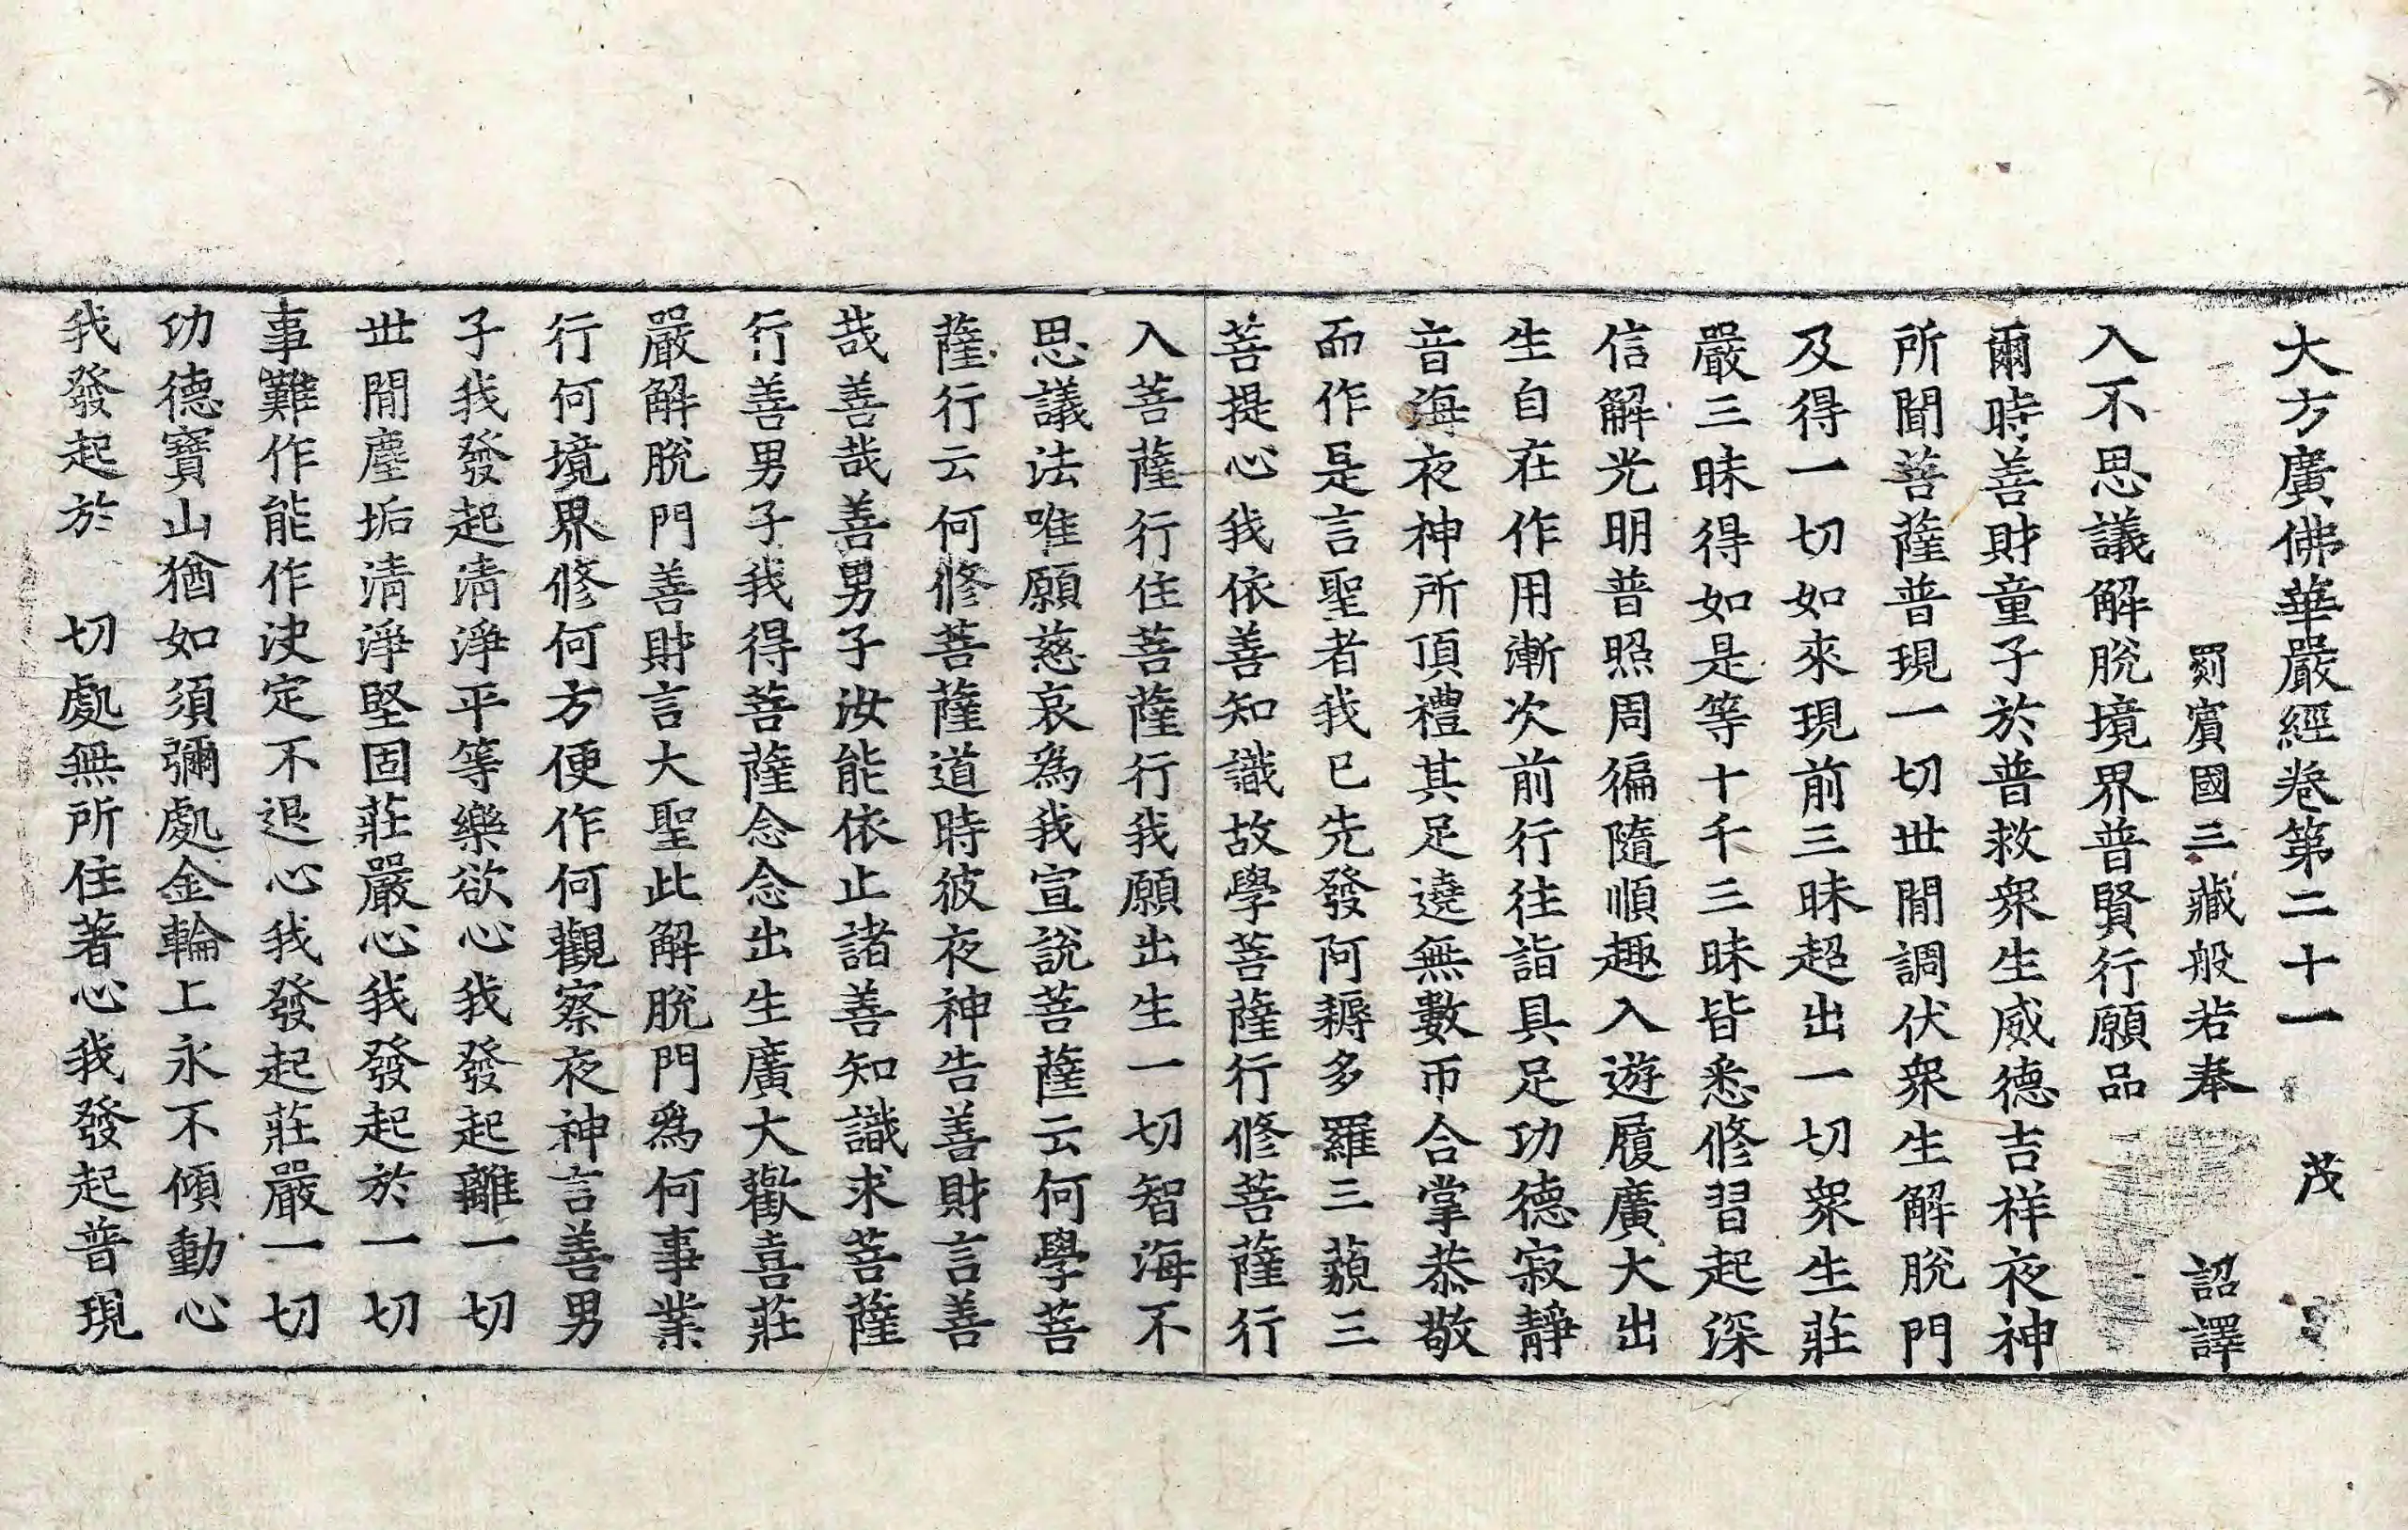 大方廣佛華嚴經卷第二十一 茂
罽賓國三藏般若奉 詔譯
入不思議解脫境界普賢行願品
爾時善財童子於普救衆生威德吉祥夜神
所聞菩薩普現一切世閒調伏衆生解脫門
及得一切如來現前三昧超出一切衆生莊
嚴三昧得如是等十千三昧皆悉修習起深
信解光明普照周徧隨順趣入遊履廣大出
生自在作用漸次前行往詣具足功德寂靜
音海夜神所頂禮其足遶無數帀合掌恭敬
而作是言聖者我已先發阿耨多羅三藐三
菩提心我依善知識故學菩薩行修菩薩行
入菩薩行住菩薩行我願出生一切智海不
思議法唯願慈哀爲我宣說菩薩云何學菩
薩行云何修菩薩道時彼夜神告善財言善
哉善哉善男子汝能依止諸善知識求菩薩
行善男子我得菩薩念念出生廣大歡喜莊
嚴解脫門善財言大聖此解脫門爲何事業
行何境界修何方便作何觀察夜神言善男
子我發起清淨平等樂欲心我發起離一切
世閒塵垢清淨堅固莊嚴心我發起於一切
事難作能作決定不退心我發起莊嚴一切
功德寶山猶如須彌處金輪上永不傾動心
我發起於 切處無所住著心我發起普現